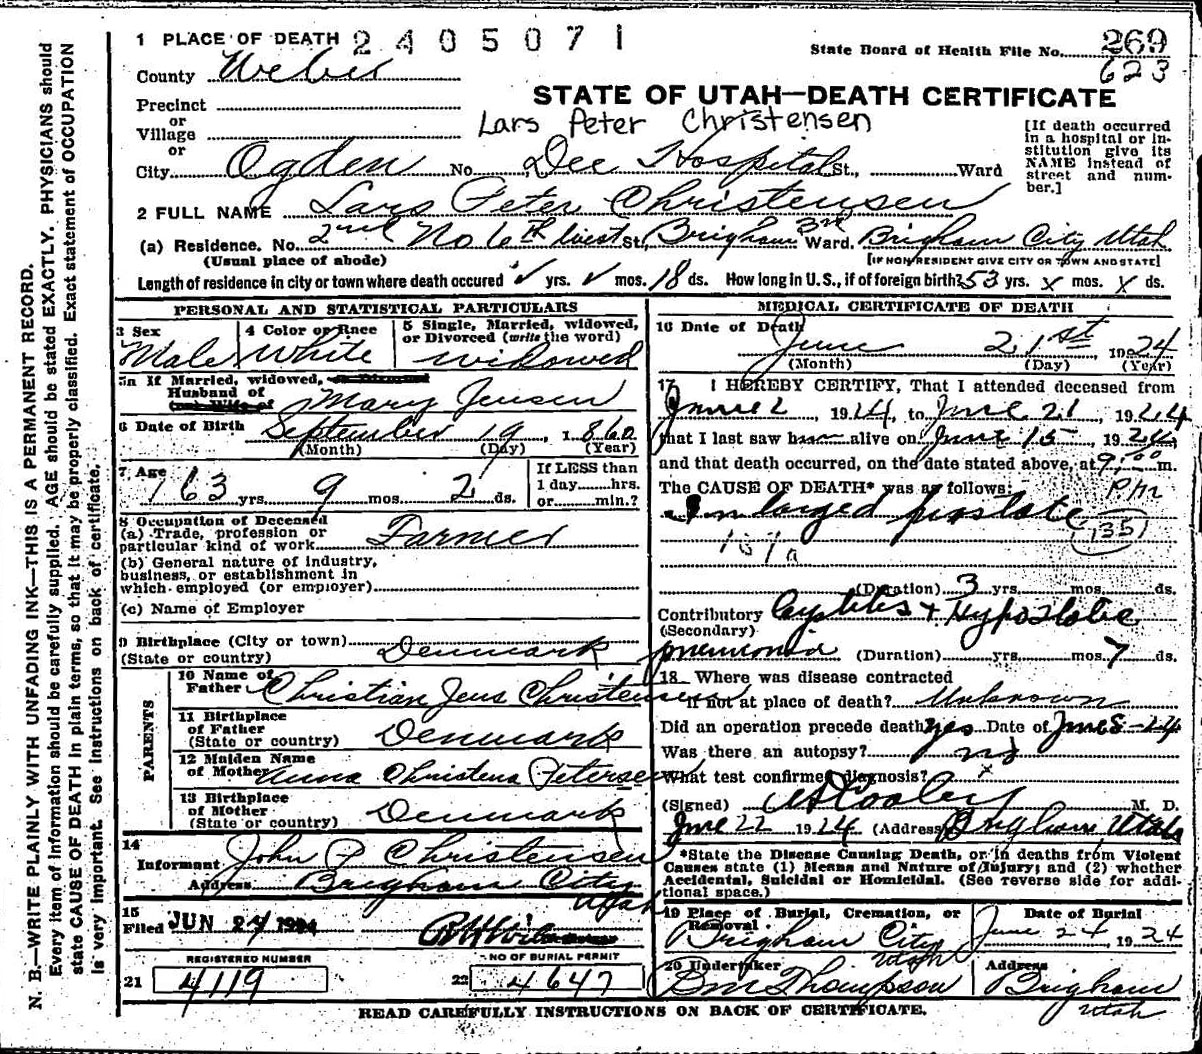 1 PLACE OF DEATH 2405071
State Board of Health File No. 269
County Weber
623
Precinct
STATE OF UTAH—DEATH CERTIFICATE
or
Village
Lars Peter Christensen
or
City Ogden No. Dee Hospital St., Ward
[If death occurred in a hospital or institution give its NAME instead of street and number.]
2 FULL NAME Lars Peter Christensen
(a) Residence. No. 2nd No 6th West St, Brigham 3rd Ward. Brigham City Utah
(Usual place of abode) [IF NON-RESIDENT GIVE CITY OR TOWN AND STATE]
Length of residence in city or town where death occured yrs. mos. 18 ds. How long in U.S., if of foreign birth? 53 yrs. x mos. x ds.
PERSONAL AND STATISTICAL PARTICULARS
3 Sex Male
4 Color or Race White
5 Single, Married, widowed, or Divorced (write the word) widowed
5a If Married, widowed, or Divorced
Husband of
(or) Wife of
Mary Jensen
6 Date of Birth September 19, 1860
(Month) (Day) (Year)
7 Age 63 yrs. 9 mos. 2 ds.
If LESS than
1 day hrs.
or min.?
8 Occupation of Deceased
(a) Trade, profession or
particular kind of work Farmer
(b) General nature of industry,
business, or establishment in
which employed (or employer)
(c) Name of Employer
9 Birthplace (City or town)
(State or country) Denmark
PARENTS
10 Name of
Father Christian Jens Christensen
11 Birthplace
of Father
(State or country) Denmark
12 Maiden Name
of Mother Anna Christena Petersen
13 Birthplace
of Mother
(State or country) Denmark
14
Informant John P Christensen
Address Brigham City
Utah
15
Filed JUN 24 1924
REGISTERED NUMBER
21 4119
NO OF BURIAL PERMIT
22 4647
MEDICAL CERTIFICATE OF DEATH
16 Date of Death
June 21st 1924
(Month) (Day) (Year)
17 I HEREBY CERTIFY, That I attended deceased from
June 2, 1924, to June 21, 1924
that I last saw him alive on June 15 1924
and that death occurred, on the date stated above, at 9:00 m.
The CAUSE OF DEATH* was as follows: Pm
Enlarged prostate
135
137a
(Duration) 3 yrs. mos. ds.
Contributory Cystitis + Hypostatic
(Secondary)
pneumonia (Duration) yrs. mos. 7 ds.
18 Where was disease contracted
if not at place of death? Unknown
Did an operation precede death? yes Date of June 8-24
Was there an autopsy? no
What test confirmed diagnosis? x
(Signed) Cooley M. D.
June 22 1924 (Address) Brigham Utah
*State the Disease Causing Death, or in deaths from Violent
Causes state (1) Means and Nature of Injury; and (2) whether
Accidental, Suicidal or Homicidal. (See reverse side for additional space.)
19 Place of Burial, Cremation, or
Removal.
Brigham City
Utah
Date of Burial
June 24, 1924
20 Undertaker
Bm Thompson
Address
Brigham
Utah
READ CAREFULLY INSTRUCTIONS ON BACK OF CERTIFICATE.
N. B.—WRITE PLAINLY WITH UNFADING INK—THIS IS A PERMANENT RECORD.
Every item of information should be carefully supplied. AGE should be stated EXACTLY. PHYSICIANS should
state CAUSE OF DEATH in plain terms, so that it may be properly classified. Exact statement of OCCUPATION
is very important. See instructions on back of certificate.